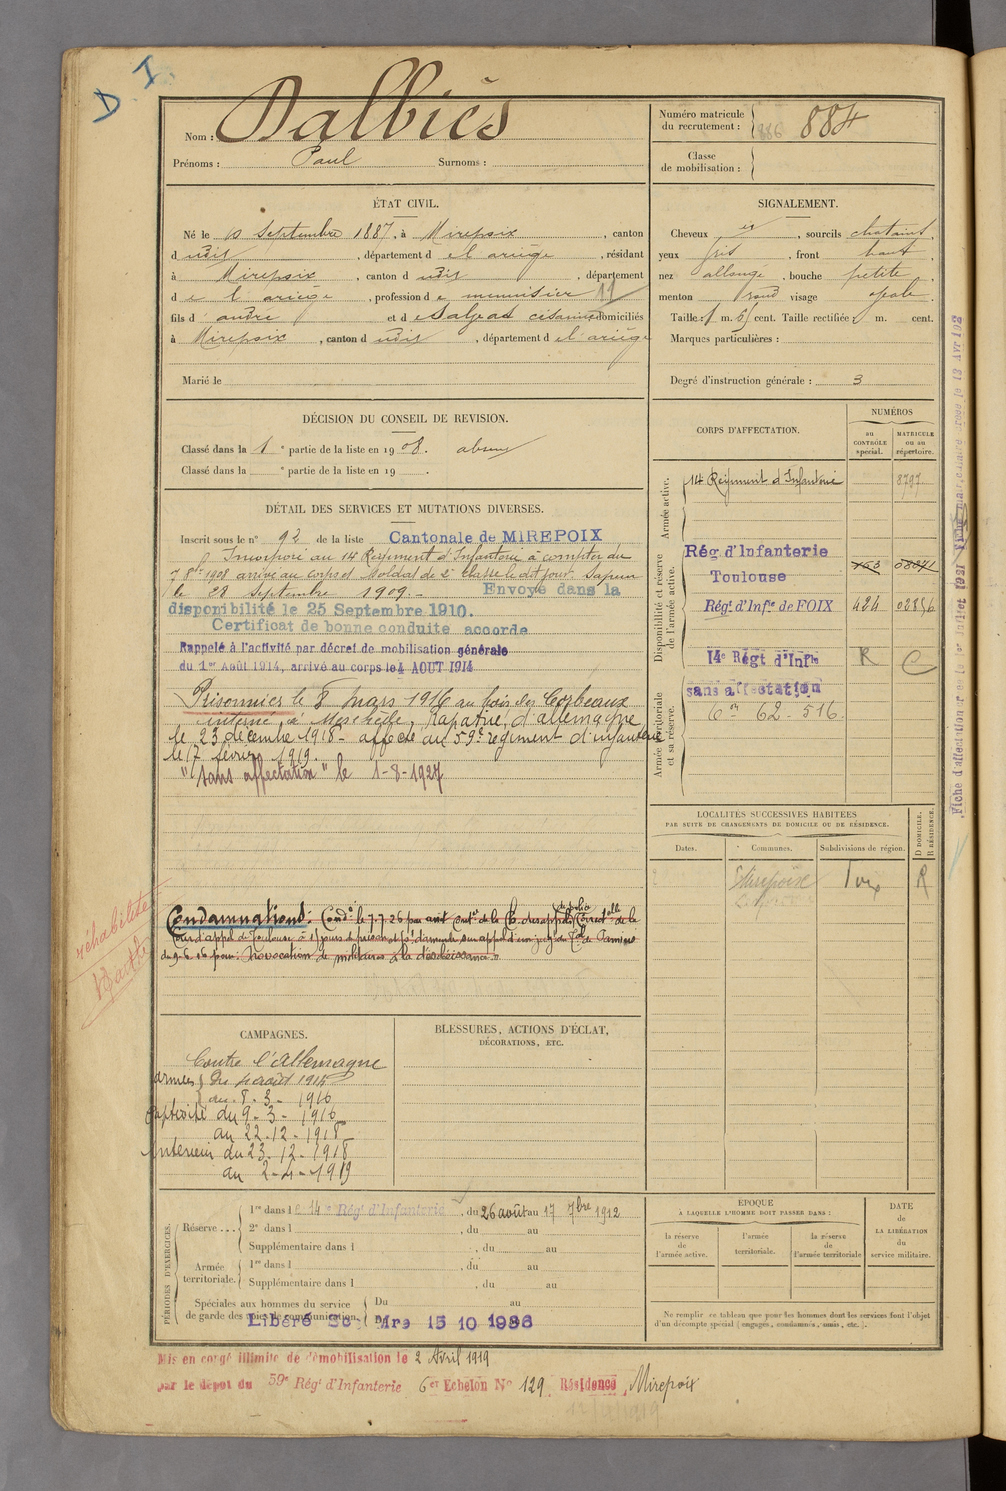 D. I.
Nom : Dalbiès
Prénoms : Paul Surnoms :
Numéro matricule
du recrutement : 886 884
Classe
de mobilisation :
ÉTAT CIVIL.
Né le 10 Septembre 1887, à Mirepoix, canton
d udit, département d el ariège, résidant
à Mirepoix, canton d udit, département
d e l ariège, profession d e menuisier 11
fils d' andré et d e domiciliés
à Mirepoix, canton d udit, département d el ariège
Marié le
SIGNALEMENT.
Cheveux et, sourcils chatains,
yeux gris, front haut,
nez allongé, bouche petite
menton rond visage ovale.
Taille : 1 m. 61 cent. Taille rectifiée : m. cent.
Marques particulières :
Degré d'instruction générale : 3
DÉCISION DU CONSEIL DE REVISION.
Classé dans la 1e partie de la liste en 1908. absent
Classé dans la e partie de la liste en 19 .
DÉTAIL DES SERVICES ET MUTATIONS DIVERSES.
Inscrit sous le n° 92 de la liste Cantonale de MIREPOIX
Incorporé au 14 Regiment d'Infanterie à compter du
7 8bre 1908 arrivé au corps et soldat de 2e classe le dit jour. Sapeur
le 28 Septembre 1909. - Envoyé dans la
disponibilité le 25 Septembre 1910.
Certificat de bonne conduite accorde
Rappelé à l'activité par décret de mobilisation générale
du 1er Août 1914, arrivé au corps le 4 AOUT 1914
Prisonnier le 8 mars 1916 au bois des Corbeaux
interné à Meschede, Rapatrié d'allemagne
le 23 décembre 1918 - affecté au 59e regiment d'infanterie
le 17 février 1919.
"sans affectation" le 1-8-1927
CORPS D'AFFECTATION.
NUMÉROS
au
CONTRÔLE
spécial.
MATRICULE
ou au
répertoire.
Armée active.
14 Regiment d'Infanterie 8797
Disponibilité et réserve
de l'armée active.
Rég. d'Infanterie
Toulouse
Régt d'Infie de FOIX 424 02856
14e Régt d'Infie R C
Armée territoriale
et sa réserve.
sans affectation
6on 62-516
LOCALITÉS SUCCESSIVES HABITÉES
PAR SUITE DE CHANGEMENTS DE DOMICILE OU DE RÉSIDENCE.
Dates. Communes. Subdivisions de région. D DOMICILE. R RÉSIDENCE.
Mirepoix Foix R
réhabilité
Condamnations : Condé le 7.7.26 par arrêt de la Ch. des appels de police Correctelle de la
Cour d'appel de Toulouse à jours de prison et sur appel d'un jugt du Tal de Pamiers
du 9-6-26 pour : Provocation de militaires à la désobéissance."
CAMPAGNES.
Contre l'Allemagne
armées Du 4 août 1914
au 8-3-1916
captivité du 9-3-1916
au 22-12-1918
Intérieur du 23-12-1918
au 2-4-1919
BLESSURES, ACTIONS D'ÉCLAT,
DÉCORATIONS, ETC.
PÉRIODES D'EXERCICES.
Réserve ...
1re dans l e 14e Régt d'Infanterie, du 26 août au 17 7bre 1912
2e dans l , du au
Supplémentaire dans l , du au
Armée
territoriale.
1re dans l , du au
Supplémentaire dans l , du au
Spéciales aux hommes du service
de garde des voies de communication.
Du au
Libéré Sce Mre 15 10 1936
ÉPOQUE
À LAQUELLE L'HOMME DOIT PASSER DANS :
la réserve
de
l'armée active.
l'armée
territoriale.
la réserve
de
l'armée territoriale
DATE
de
LA LIBÉRATION
du
service militaire.
Ne remplir ce tableau que pour les hommes dont les services font l'objet
d'un décompte spécial (engagés, condamnés, omis, etc.).
Mis en congé illimité de démobilisation le 2 Avril 1919
par le dépôt du 59e Régt d'Infanterie 6er Echelon N° 129 Résidence Mirepoix